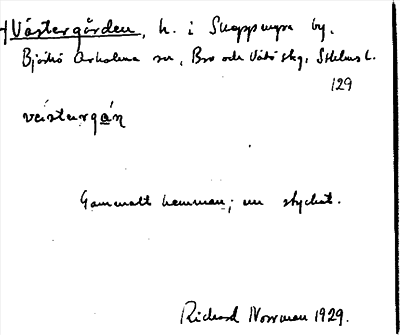 Västergården, h. i Skeppsmyra by.
Björkö Arholma sn, Bro och Vätö skg, Sthlms l.
129
vèstərgán
Gammalt hemman; nu styckat.
Richard Norrman 1929.